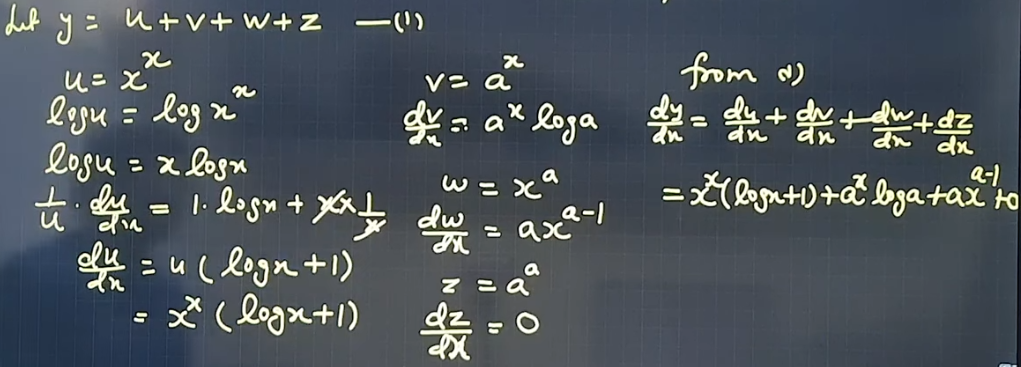 Let y = u + v + w + z —(1)
u = x^x
log u = log x^x
log u = x log x
1/u · du/dx = 1 · log x + x × 1/x
du/dx = u ( log x + 1)
= x^x ( log x + 1)
v = a^x
dv/dx = a^x log a
w = x^a
dw/dx = a x^{a-1}
z = a^a
dz/dx = 0
from (1)
dy/dx = du/dx + dv/dx + dw/dx + dz/dx
= x^x (log x + 1) + a^x log a + a x^{a-1} + 0